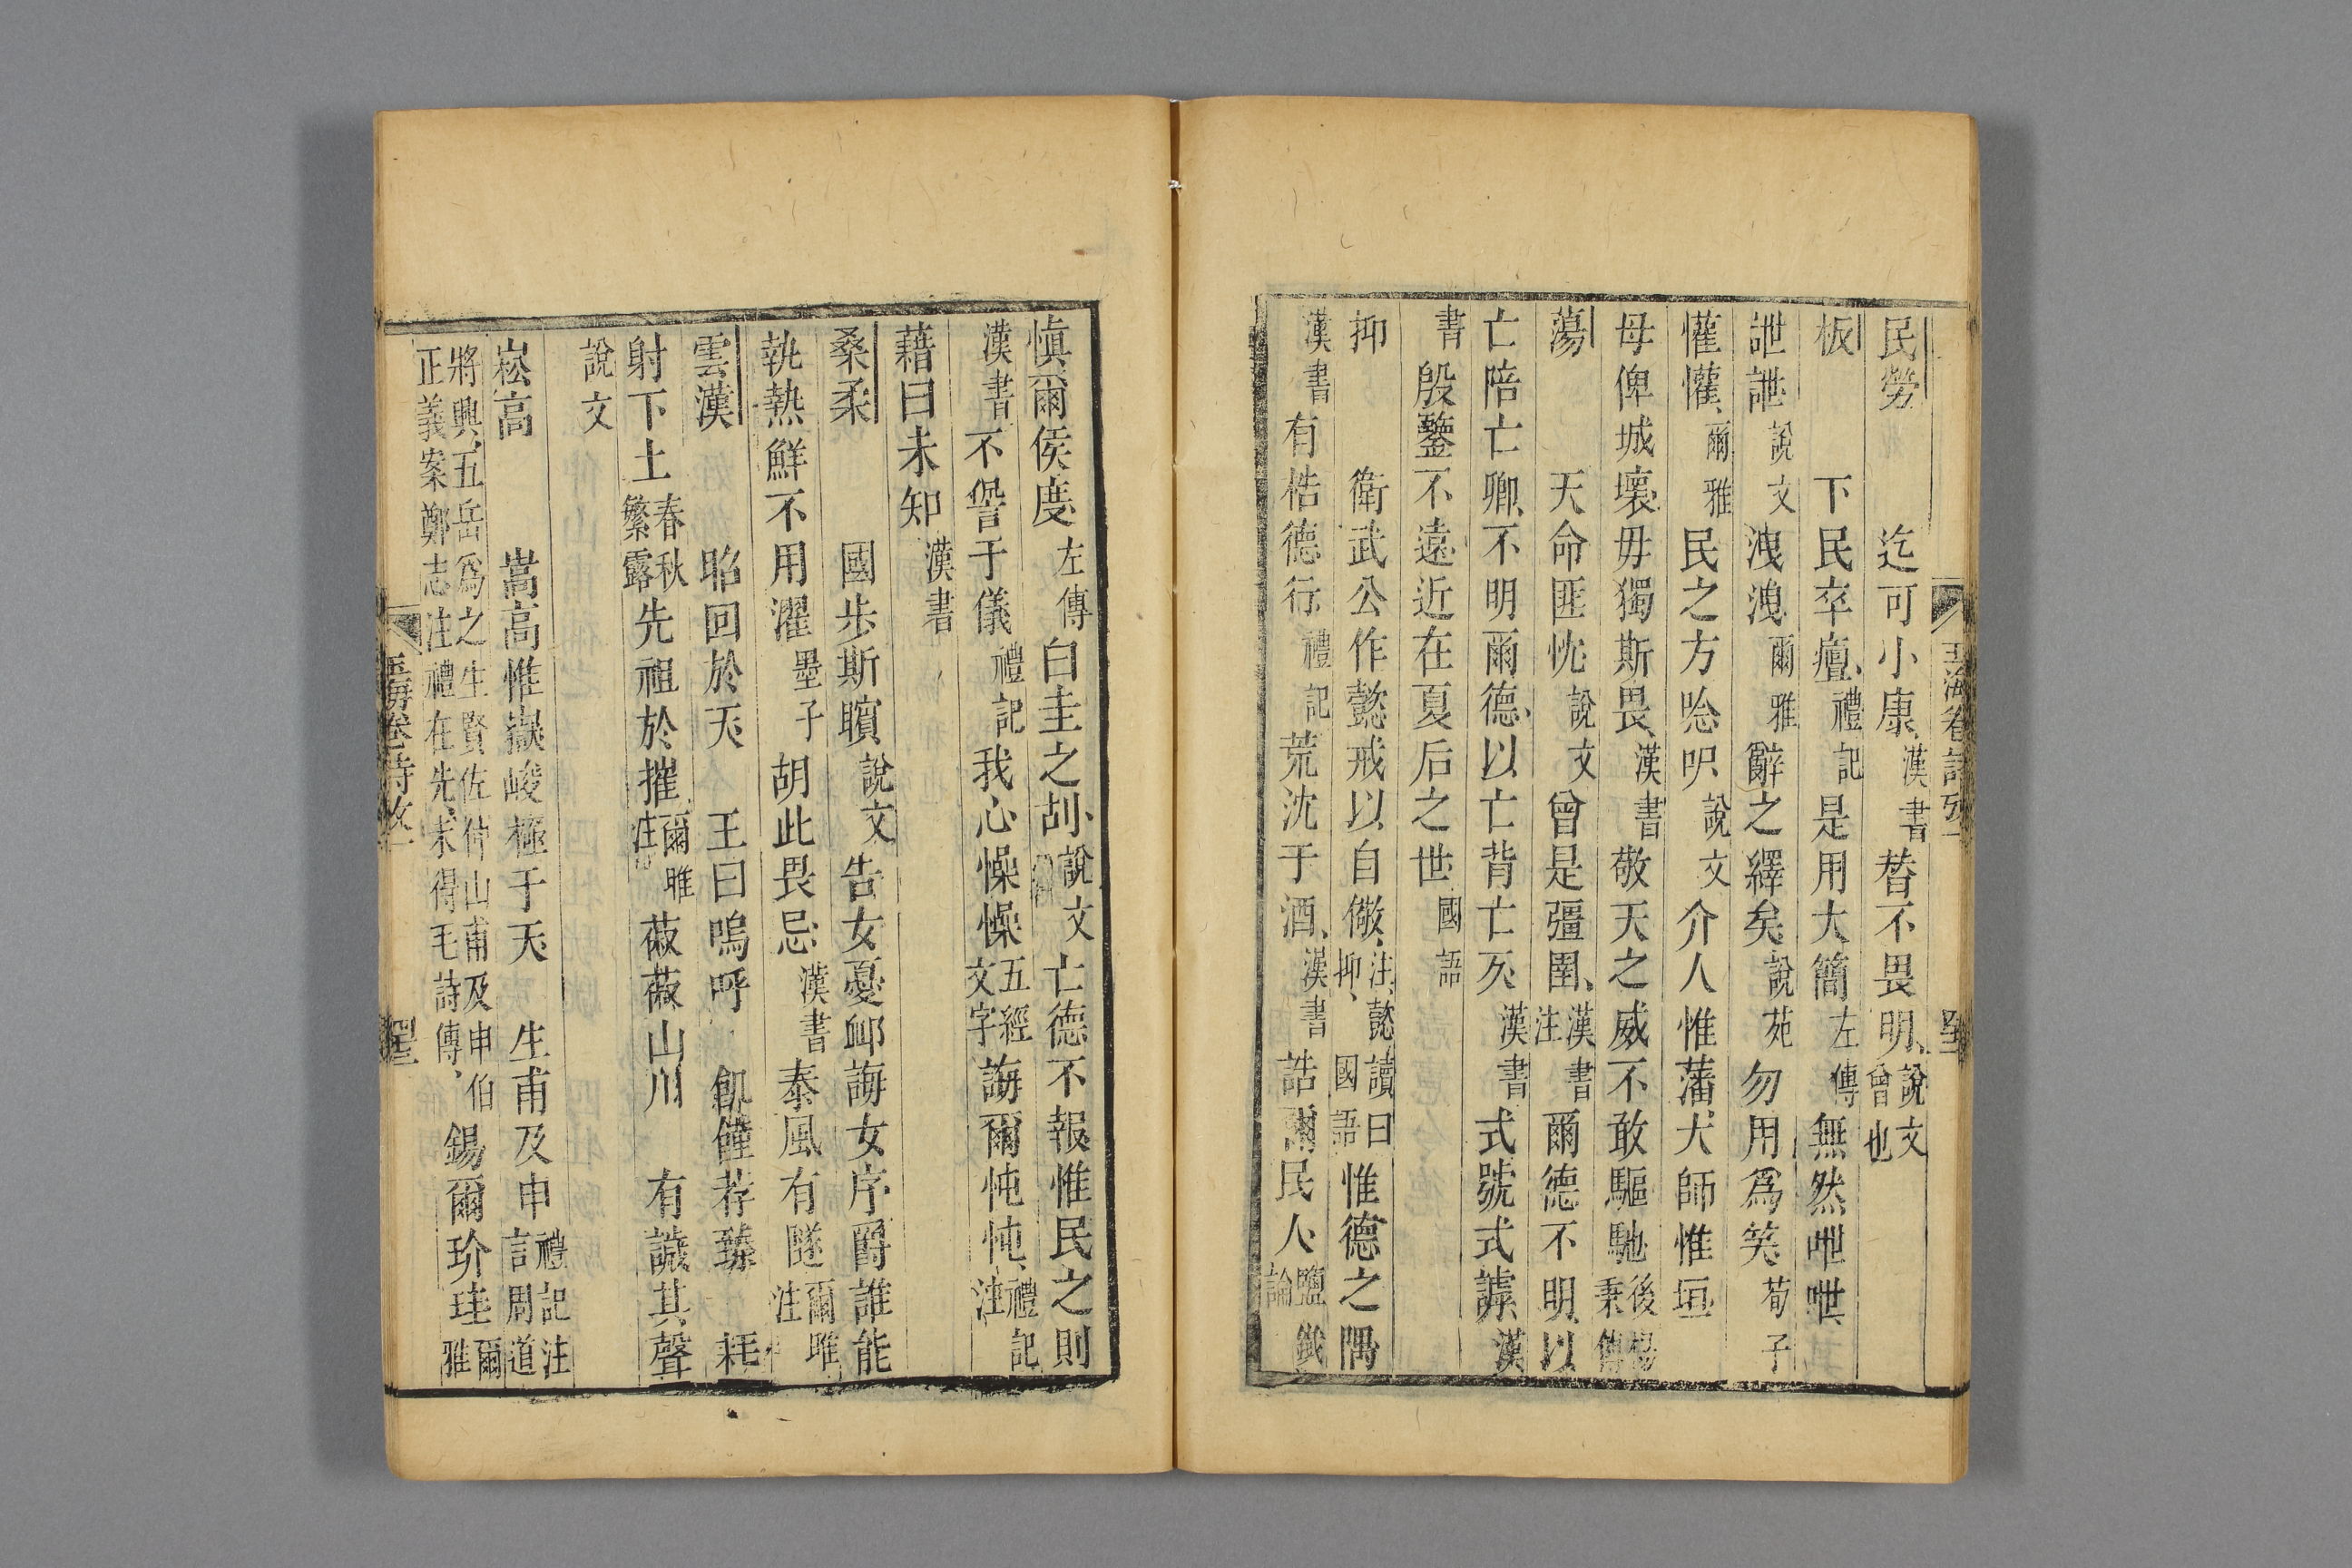 民勞　迄可小康漢書朁不畏明說文曾也
板　下民卒癉禮記是用大簡左傳無然呭呭
詍詍說文洩洩爾雅辭之繹矣說苑勿用爲笑荀子
懽懽爾雅民之方唸㕧說文介人惟藩大師惟垣
毋俾城壞毋獨斯畏漢書敬天之威不敢驅馳後楊秉傳
蕩　天命匪忱說文曾是彊圉漢書注爾德不明以
亡陪亡卿不明爾德以亡背亡仄漢書式號式謼漢
書殷鑒不遠近在夏后之世國語
抑　衛武公作懿戒以自儆注懿讀曰抑國語惟德之隅
漢書有梏德行禮記荒沈于酒漢書誥爾民人鹽鐵論
慎爾侯度左傳白圭之㓠說文亡德不報惟民之則
漢書不諐于儀禮記我心懆懆五經文字誨爾忳忳禮記注
藉曰未知漢書
桑柔　國步斯矉說文告女憂卹誨女序爵誰能
執熱鮮不用濯墨子胡此畏忌漢書泰風有隧爾雅注
雲漢　昭回於天　王曰嗚呼　飢饉荐臻　耗
射下土春秋繁露先祖於摧爾雅注蔋蔋山川　有諴其聲
說文
崧高　嵩高惟嶽峻極于天　生甫及申禮記注言周道
將興五岳爲之生賢佐仲山甫及申伯正義案鄭志注禮在先未得毛詩傳錫爾玠珪爾雅